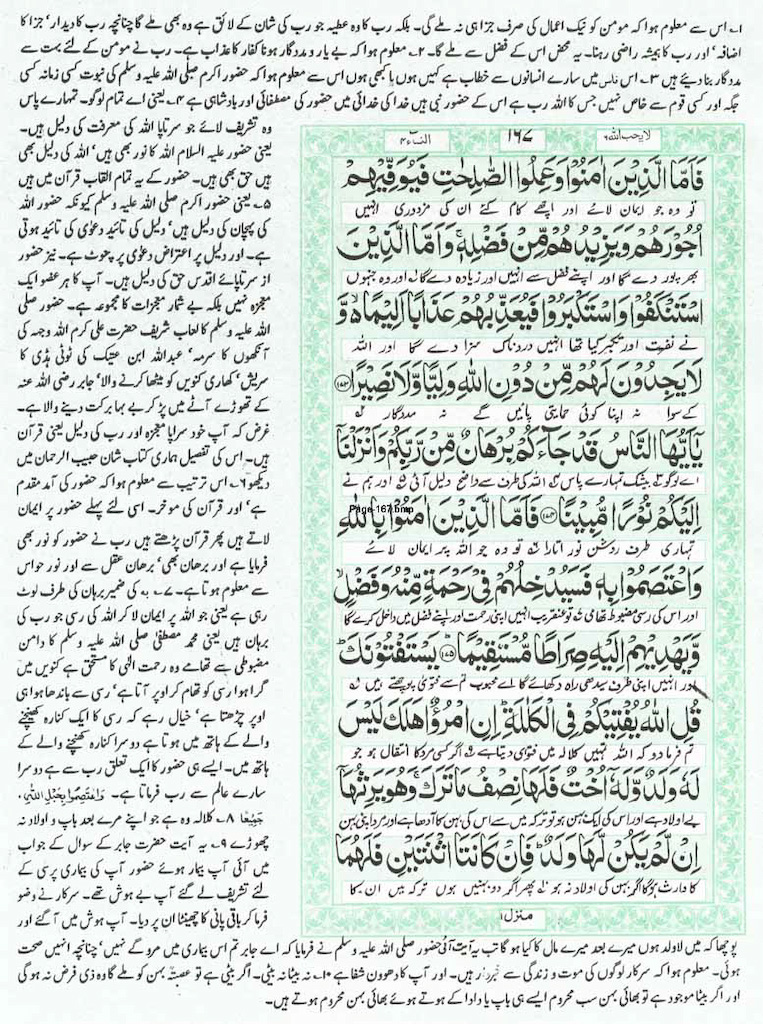 ۱۔ اس سے معلوم ہوا کہ مومن کو نیک اعمال کی صرف جزا ہی نہ ملے گی۔ بلکہ رب کا وہ عطیہ جو رب کی شان کے لائق ہے وہ بھی ملے گا چنانچہ رب کا دیدار' جزا کا
اضافہ' اور رب کا ہمیشہ راضی رہنا۔ یہ محض اس کے فضل سے ملے گا۔ ۲۔ معلوم ہوا کہ بے یار و مددگار ہونا کفار کا عذاب ہے۔ رب نے مومن کے لئے بہت سے
مددگار بنا دیئے ہیں ۳۔ اس میں سارے انسانوں سے خطاب ہے کہیں ہوں یا کبھی ہوں اس سے معلوم ہوا کہ حضور اکرم صلی اللہ علیہ وسلم کی نبوت کسی زمانہ کسی
جگہ اور کسی قوم سے خاص نہیں جس کا اللہ رب ہے اس کے حضور نبی ہیں خدا کی خدائی میں حضور کی مصطفائی اور بادشاہی ہے ۴۔ یعنی اے تمام لوگو۔ تمہارے پاس
وہ تشریف لائے جو سرتاپا اللہ کی معرفت کی دلیل ہیں۔
یعنی حضور علیہ السلام اللہ کا نور بھی ہیں' اللہ کی دلیل بھی
ہیں حق بھی ہیں۔ حضور کے یہ تمام القاب قرآن میں ہیں
۵۔ یعنی حضور اکرم صلی اللہ علیہ وسلم کیونکہ حضور اللہ
کی پہچان کی دلیل ہیں' دلیل کی تائید دعوٰی کی تائید ہوتی
ہے۔ اور دلیل پر اعتراض دعوٰی پر چوٹ ہے۔ نیز حضور
از سرتاپائے اقدس حق کی دلیل ہیں۔ آپ کا ہر عضو ایک
معجزہ نہیں بلکہ بے شمار معجزات کا مجموعہ ہے۔ حضور صلی
اللہ علیہ وسلم کا لعاب شریف حضرت علی کرم اللہ وجہہ کی
آنکھوں کا سرمہ' عبداللہ ابن عتیک کی ٹوٹی ہڈی کا
سریش' کھاری کنویں کو میٹھا کرنے والا' جابر رضی اللہ عنہ
کے تھوڑے آٹے میں پڑ کر بے بہا برکت دینے والا ہے۔
غرض کہ آپ خود سراپا معجزہ اور رب کی دلیل یعنی قرآن
ہیں۔ اس کی تفصیل ہماری کتاب شان حبیب الرحمان میں
دیکھو ۶۔ اس ترتیب سے معلوم ہوا کہ حضور کی آمد مقدم
ہے' اور قرآن کی موخر۔ اسی لئے پہلے حضور پر ایمان
لاتے ہیں پھر قرآن پڑھتے ہیں رب نے حضور کو نور بھی
فرمایا ہے اور برھان بھی' برھان عقل سے اور نور حواس
سے معلوم ہوتا ہے۔ ۷۔ بہ کی ضمیر برہان کی طرف لوٹ
رہی ہے یعنی جو اللہ پر ایمان لا کر اللہ کی رسی جو رب کی
برہان ہیں یعنی محمد مصطفٰی صلی اللہ علیہ وسلم کا دامن
مضبوطی سے تھامے وہ رحمت الٰہی کا مستحق ہے کنویں میں
گرا ہوا رسی کو تھام کر اوپر آتا ہے' رسی سے باندھا ہوا ہی
اوپر چڑھتا ہے' خیال رہے کہ رسی کا ایک کنارہ کھینچنے
والے کے ہاتھ میں ہوتا ہے دوسرا کنارہ کھنچنے والے کے
ہاتھ میں۔ ایسے ہی حضور کا ایک تعلق رب سے ہے دوسرا
سارے عالم سے رب فرماتا ہے۔ وَاعْتَصِمُوا بِحَبْلِ اللّٰهِ
جَمِيْعًا ۸۔ کلالہ وہ ہے جو اپنے مرے بعد باپ و اولاد نہ
چھوڑے ۹۔ یہ آیت حضرت جابر کے سوال کے جواب
میں آئی آپ بیمار ہوئے حضور آپ کی بیمار پرسی کے
لئے تشریف لے گئے آپ بے ہوش تھے۔ سرکار نے وضو
فرما کر باقی پانی کا چھینٹا ان پر دیا۔ آپ ہوش میں آ گئے اور
لایحب اللہ۶
۱۶۷
النسآء۴
فَاَمَّا الَّذِيْنَ اٰمَنُوْا وَعَمِلُوا الصّٰلِحٰتِ فَيُوَفِّيْهِمْ
تو وہ جو ایمان لائے اور اچھے کام کئے ان کی مزدوری انہیں
اُجُوْرَهُمْ وَيَزِيْدُهُمْ مِّنْ فَضْلِهٖ ۚ وَاَمَّا الَّذِيْنَ
بھر پور دے گا اور اپنے فضل سے انہیں اور زیادہ دے گا اور وہ جنہوں
اسْتَنْكَفُوْا وَاسْتَكْبَرُوْا فَيُعَذِّبُهُمْ عَذَابًا اَلِيْمًا ۙ وَّ
نے نفرت اور تکبر کیا تھا انہیں دردناک سزا دے گا اور اللہ
لَا يَجِدُوْنَ لَهُمْ مِّنْ دُوْنِ اللّٰهِ وَلِيًّا وَّلَا نَصِيْرًا ۝۱۷۳
کے سوا نہ اپنا کوئی حمایتی پائیں گے نہ مددگار
يٰٓاَيُّهَا النَّاسُ قَدْ جَآءَكُمْ بُرْهَانٌ مِّنْ رَّبِّكُمْ وَاَنْزَلْنَآ
اے لوگو بیشک تمہارے پاس اللہ کی طرف سے واضح دلیل آئی اور ہم نے
اِلَيْكُمْ نُوْرًا مُّبِيْنًا ۝۱۷۴ فَاَمَّا الَّذِيْنَ اٰمَنُوْا بِاللّٰهِ
Page-167.bmp
تمہاری طرف روشن نور اتارا تو وہ جو اللہ پر ایمان لائے
وَاعْتَصَمُوْا بِهٖ فَسَيُدْخِلُهُمْ فِيْ رَحْمَةٍ مِّنْهُ وَفَضْلٍ ۙ
اور اس کی رسی مضبوط تھامی تو عنقریب انہیں اپنی رحمت اور اپنے فضل میں داخل کرے گا
وَّيَهْدِيْهِمْ اِلَيْهِ صِرَاطًا مُّسْتَقِيْمًا ۝۱۷۵ يَسْتَفْتُوْنَكَ ؕ
اور انہیں اپنی طرف سیدھی راہ دکھائے گا اے محبوب تم سے فتویٰ پوچھتے ہیں
قُلِ اللّٰهُ يُفْتِيْكُمْ فِي الْكَلٰلَةِ ؕ اِنِ امْرُؤٌا هَلَكَ لَيْسَ
تم فرما دو کہ اللہ تمہیں کلالہ میں فتویٰ دیتا ہے اگر کسی مرد کا انتقال ہو جو
لَهٗ وَلَدٌ وَّلَهٗٓ اُخْتٌ فَلَهَا نِصْفُ مَا تَرَكَ ۚ وَهُوَ يَرِثُهَآ
بے اولاد ہے اور اس کی ایک بہن ہو تو ترکہ میں سے اس کی بہن کا آدھا ہے اور مرد اپنی بہن
اِنْ لَّمْ يَكُنْ لَّهَا وَلَدٌ ؕ فَاِنْ كَانَتَا اثْنَتَيْنِ فَلَهُمَا
کا وارث ہوگا اگر بہن کی اولاد نہ ہو پھر اگر دو بہنیں ہوں ترکہ میں ان کا
منزل۱
پوچھا کہ میں لاولد ہوں میرے بعد میرے مال کا کیا ہو گا تب یہ آیت آئی حضور صلی اللہ علیہ وسلم نے فرمایا کہ اے جابر تم اس بیماری میں مرو گے نہیں' چنانچہ انہیں صحت
ہوئی۔ معلوم ہوا کہ سرکار لوگوں کی موت و زندگی سے خبردار ہیں۔ اور آپ کا دھوون شفا ہے ۱۰۔ نہ بیٹا نہ بیٹی۔ اگر بیٹی ہے تو عصبۃً بہن کو ملے گا وہ ذی فرض نہ ہوگی
اور اگر بیٹا موجود ہے تو بھائی بہن سب محروم ایسے ہی باپ یا دادا کے ہوتے ہوئے بھائی بہن محروم ہوتے ہیں۔